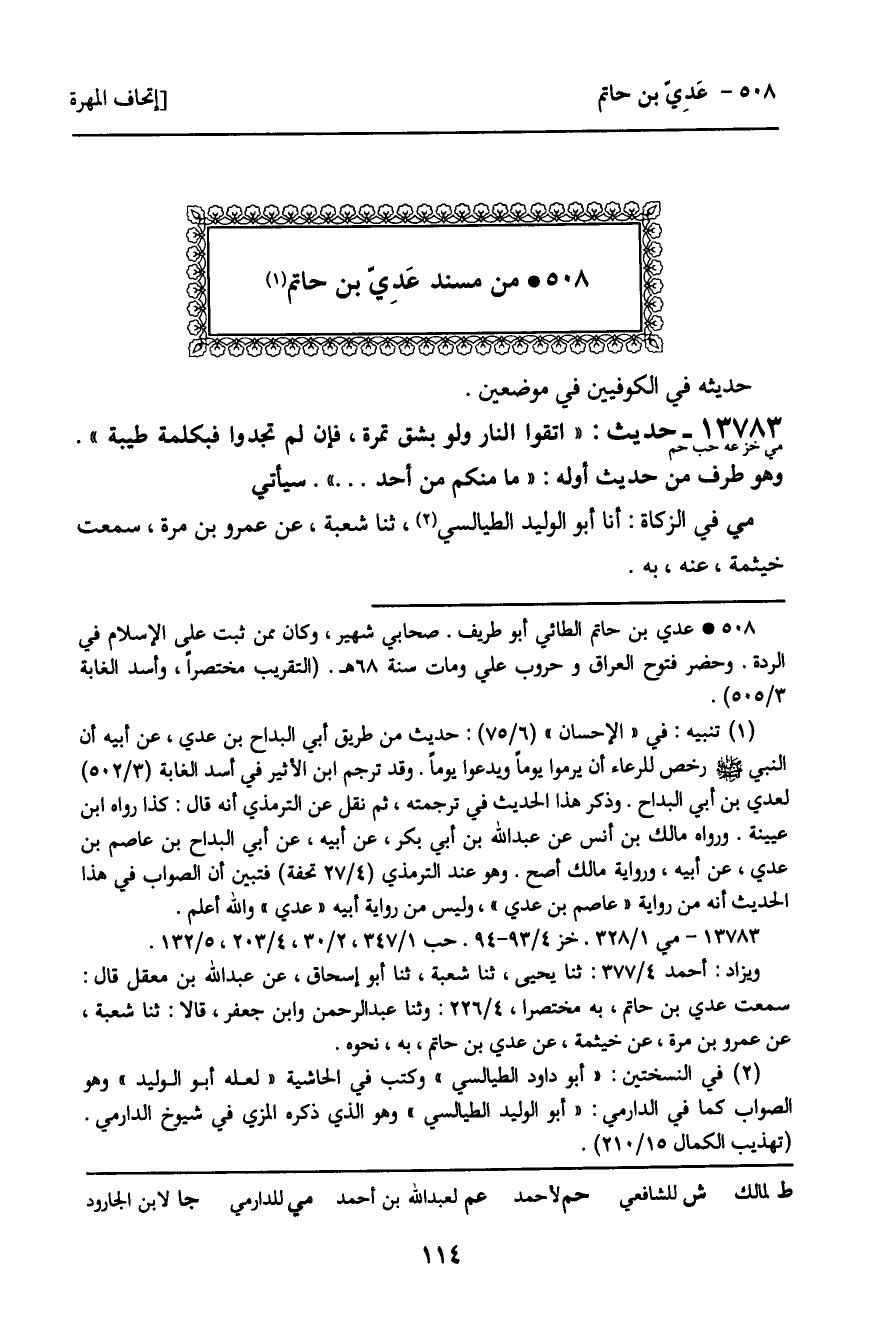 ٥٠٨ - عَدِيّ بن حاتم [إتحاف المهرة
٥٠٨ ● من مسند عَدِيّ بن حاتم(١)
حديثه في الكوفيين في موضعين .
١٣٧٨٣ - حديث : « اتقوا النار ولو بشق تمرة ، فإن لم تجدوا فبكلمة طيبة » .
مي خز عه حب حم
وهو طرف من حديث أوله : « ما منكم من أحد ...» . سيأتي
مي في الزكاة : أنا أبو الوليد الطيالسي(٢) ، ثنا شعبة ، عن عمرو بن مرة ، سمعت
خيثمة ، عنه ، به .
٥٠٨ ● عدي بن حاتم الطائي أبو طريف . صحابي شهير ، وكان ممن ثبت على الإسلام في
الردة . وحضر فتوح العراق و حروب علي ومات سنة ٦٨هـ . (التقريب مختصراً ، وأسد الغابة
٥٠٥/٣) .
(١) تنبيه : في « الإحسان » (٧٥/٦) : حديث من طريق أبي البداح بن عدي ، عن أبيه أن
النبي ﷺ رخص للرعاء أن يرموا يوماً ويدعوا يوماً . وقد ترجم ابن الأثير في أسد الغابة (٥٠٢/٣)
لعدي بن أبي البداح . وذكر هذا الحديث في ترجمته ، ثم نقل عن الترمذي أنه قال : كذا رواه ابن
عيينة . ورواه مالك بن أنس عن عبدالله بن أبي بكر ، عن أبيه ، عن أبي البداح بن عاصم بن
عدي ، عن أبيه ، ورواية مالك أصح . وهو عند الترمذي (٢٧/٤ تحفة) فتبين أن الصواب في هذا
الحديث أنه من رواية « عاصم بن عدي » ، وليس من رواية أبيه « عدي » والله أعلم .
١٣٧٨٣ - مي ٣٢٨/١ . خز ٩٣/٤-٩٤ . حب ٣٤٧/١ ، ٣٠/٢ ، ٢٠٣/٤ ، ١٣٢/٥ .
ويزاد : أحمد ٣٧٧/٤ : ثنا يحيى ، ثنا شعبة ، ثنا أبو إسحاق ، عن عبدالله بن معقل قال :
سمعت عدي بن حاتم ، به مختصرا ، ٢٢٦/٤ : وثنا عبدالرحمن وابن جعفر ، قالا : ثنا شعبة ،
عن عمرو بن مرة ، عن خيثمة ، عن عدي بن حاتم ، به ، نحوه .
(٢) في النسختين : « أبو داود الطيالسي » وكتب في الحاشية « لعله أبو الوليد » وهو
الصواب كما في الدارمي : « أبو الوليد الطيالسي » وهو الذي ذكره المزي في شيوخ الدارمي .
(تهذيب الكمال ٢١٠/١٥) .
ط لمالك ش للشافعي حم لأحمد عم لعبدالله بن أحمد مي للدارمي جا لابن الجارود
١١٤